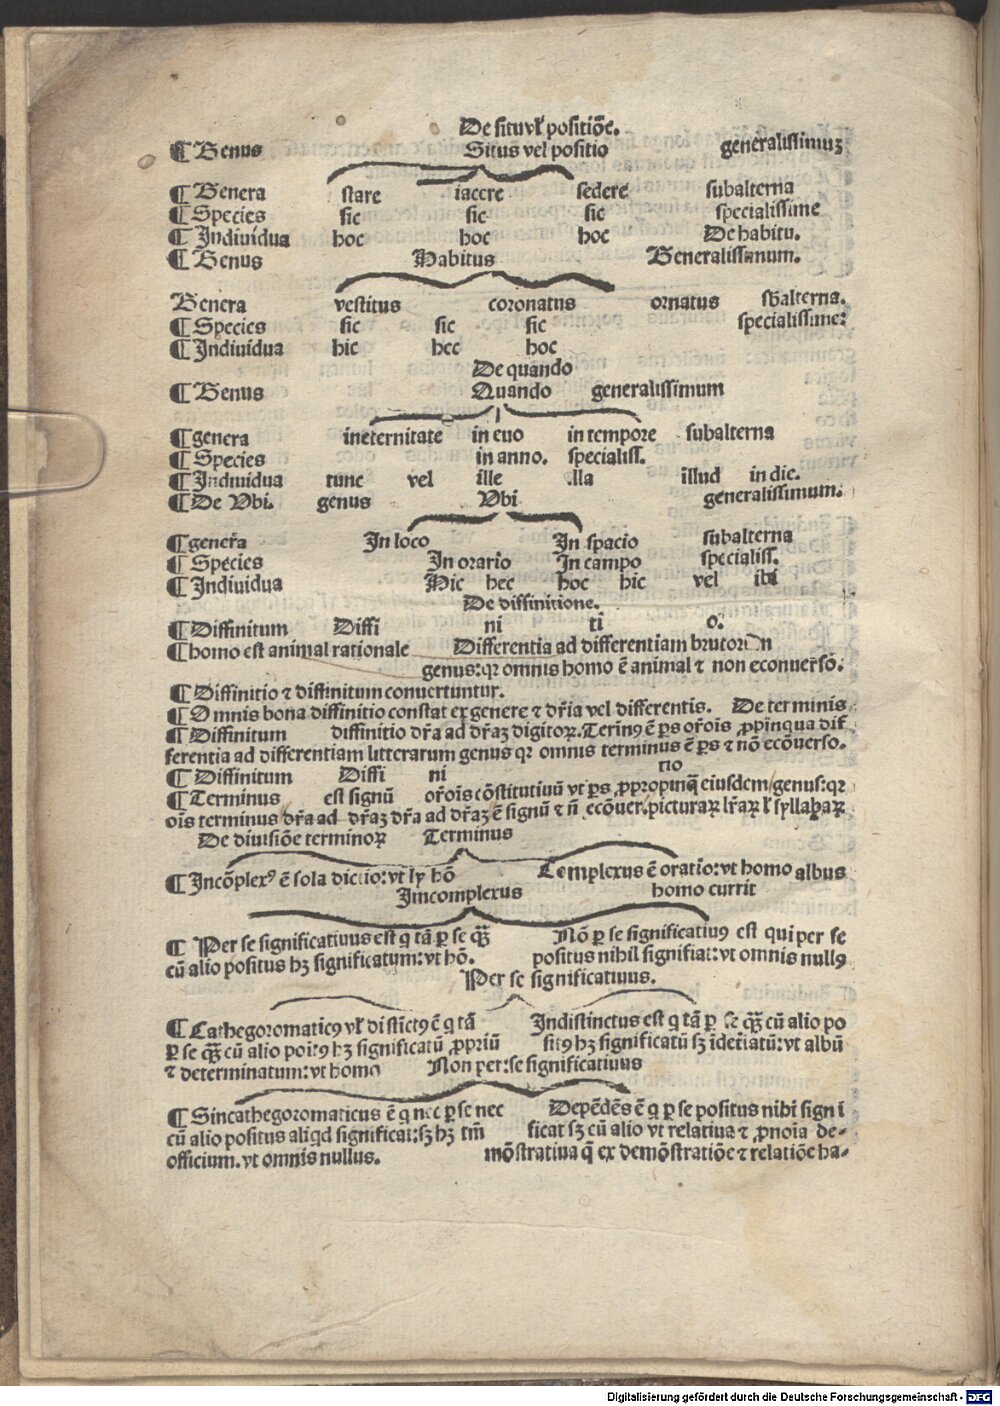 De situ vl' positiõe.
¶ Genus Situs vel positio generalissimuꝫ
¶ Genera stare iacere sedere subalterna
¶ Species sic sic sic specialissime
¶ Individua hoc hoc hoc De habitu.
¶ Genus Habitus Generalissimum.
Genera vestitus coronatus ornatus sbalterna.
¶ Species sic sic sic specialissime:
¶ Individua hic hec hoc
De quando
¶ Genus Quando generalissimum
¶ genera ineternitate in euo in tempore subalterna
¶ Species in anno. specialiss.
¶ Individua tunc vel ille illa illud in die.
¶ De Vbi. genus Vbi generalissimum.
¶ genera In loco In spacio subalterna
¶ Species In orario In campo specialiss.
¶ Individua Hic hec hoc hic vel ibi
De diffinitione.
¶ Diffinitum Diffi ni ti o.
¶ homo est animal rationale Differentia ad differentiam brutorum
genus: qr omnis homo ẽ animal ⁊ non econuersõ.
¶ Diffinitio ⁊ diffinitum conuertuntur.
¶ Omnis bona diffinitio constat ex genere ⁊ dr̃ia vel differentis. De terminis
¶ Diffinitum diffinitio dr̃a ad dr̃aꝫ digitoꝝ. Terinꝰ ẽ ꝑs or̃ois ꝓpinqua dif
ferentia ad differentiam litterarum genus qr omnis terminus ẽ ꝑs ⁊ nõ ecõuerso.
¶ Diffinitum Diffi ni tio
¶ Terminus est signũ or̃ois cõstitutiuũ vt ꝑs ꝓpropinq̃ eiusdem genus: qr
oĩs terminus dr̃a ad dr̃aꝫ dr̃a ad dr̃aꝫ ẽ signũ ⁊ ñ ecõuer. picturaꝝ lr̃aꝝ l' syllabaꝝ
De diuisiõe terminoꝝ Terminus
¶ Incõplexꝰ ẽ sola dictio: vt ly hõ Complexus ẽ oratio: vt homo albus
Jmcomplexus homo currit
¶ Per se significatiuus est q tã ꝑ se qꝫ̃ Nõ ꝑ se significatiuꝰ est qui per se
cũ alio positus hꝫ significatum: vt hõ. positus nihil significat: vt omnis nullꝰ
Per se significatiuus.
¶ Cathegoromaticꝰ vl' distictꝰ ẽ q tã Indistinctus est q tã ꝑ se qꝫ̃ cũ alio po
ꝑ se qꝫ̃ cũ alio poitꝰ hꝫ significatũ ꝓpriũ sitꝰ hꝫ significatũ sꝫ ĩdetiatũ: vt albũ
⁊ determinatum: vt homo Non per: se significatiuus
¶ Sincathegoromaticus ẽ q nec ꝑ se nec Depẽdẽs ẽ q ꝑ se positus nihĩ signi
cũ alio positus aliqd significat: sꝫ hꝫ tm̃ ficat sꝫ cũ alio vt relatiua ⁊ ꝓnoĩa de-
officium. vt omnis nullus. mõstratiua q̃ ex demõstratiõe ⁊ relatiõe ha-
Digitalisierung gefördert durch die Deutsche Forschungsgemeinschaft - DFG